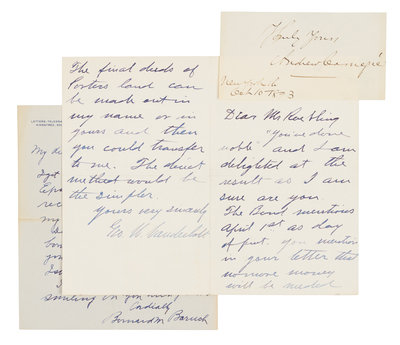 Truly Yours
Andrew Carnegie
New York
Oct 10 1803
The final deeds of
Porters land can
be made out in
my name or in
yours and then
you could transfer
to me. The direct
method would be
the simpler.
Yours very sincerely
Geo. W. Vanderbilt
Dear Mr
"you've done
noble" and I am
delighted at the
result as I am
sure are you
The Bond mentions
April 1st as day
of you mention
in your letter that
no more money
will be needed
My
I got
rec
my
you
smiling
Cordially
Bernard M Baruch